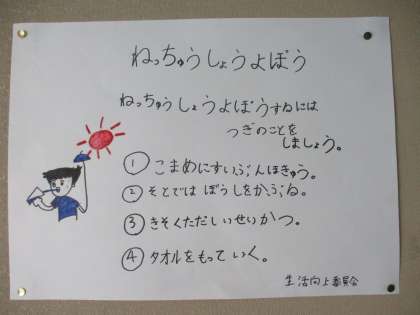 ねっちゅうしょうよぼう
ねっちゅうしょうよぼうするには
つぎのことを
しましょう。
① こまめにすいぶんほきゅう。
② そとでは ぼうしをかぶる。
③ きそくただしいせいかつ。
④ タオルをもっていく。
生活向上委員会